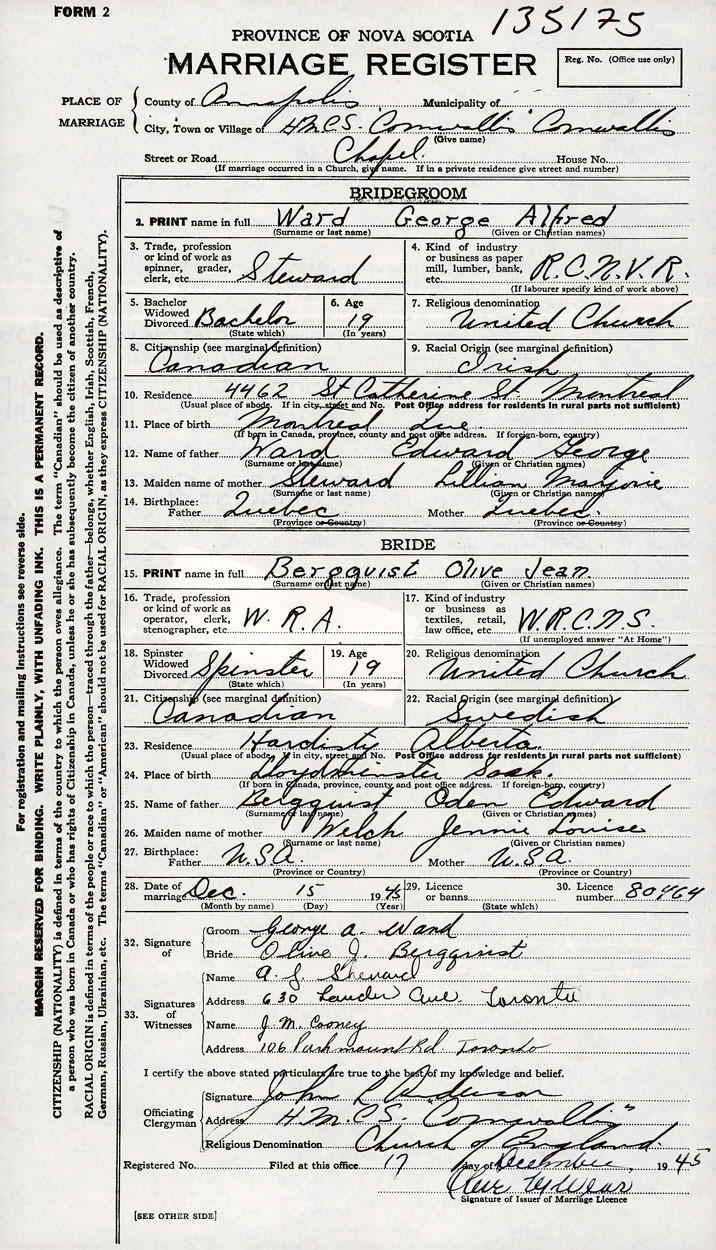 FORM 2
135175
PROVINCE OF NOVA SCOTIA
MARRIAGE REGISTER
Reg. No. (Office use only)
PLACE OF MARRIAGE
County of Annapolis Municipality of
City, Town or Village of H.M.C.S. "Cornwallis" Cornwallis
(Give name)
Street or Road Chapel. House No.
(If marriage occurred in a Church, give name. If in a private residence give street and number)
BRIDEGROOM
2. PRINT name in full Ward George Alfred
(Surname or last name) (Given or Christian names)
3. Trade, profession or kind of work as spinner, grader, clerk, etc. Steward
4. Kind of industry or business as paper mill, lumber, bank, etc. R.C.N.V.R.
(If labourer specify kind of work above)
5. Bachelor Widowed Divorced Bachelor
(State which)
6. Age 19
(In years)
7. Religious denomination United Church
8. Citizenship (see marginal definition) Canadian
9. Racial Origin (see marginal definition) Irish
10. Residence 4462 St Catherine St. Montreal
(Usual place of abode. If in city, street and No. Post Office address for residents in rural parts not sufficient)
11. Place of birth Montreal Que
(If born in Canada, province, county and post office address. If foreign-born, country)
12. Name of father Ward Edward George
(Surname or last name) (Given or Christian names)
13. Maiden name of mother Steward Lillian Marjorie
(Surname or last name) (Given or Christian names)
14. Birthplace: Father Quebec Mother Quebec.
(Province or Country) (Province or Country)
BRIDE
15. PRINT name in full Bergquist Olive Jean
(Surname or last name) (Given or Christian names)
16. Trade, profession or kind of work as operator, clerk, stenographer, etc. W.R.A.
17. Kind of industry or business as textiles, retail, law office, etc. W.R.C.N.S.
(If unemployed answer "At Home")
18. Spinster Widowed Divorced Spinster
(State which)
19. Age 19
(In years)
20. Religious denomination United Church
21. Citizenship (see marginal definition) Canadian
22. Racial Origin (see marginal definition) Swedish
23. Residence Hardisty Alberta
(Usual place of abode. If in city, street and No. Post Office address for residents in rural parts not sufficient)
24. Place of birth Lloydminster Sask.
(If born in Canada, province, county and post office address. If foreign-born, country)
25. Name of father Bergquist Oden Edward
(Surname or last name) (Given or Christian names)
26. Maiden name of mother Welch Jennie Louise
(Surname or last name) (Given or Christian names)
27. Birthplace: Father U.S.A. Mother U.S.A.
(Province or Country) (Province or Country)
28. Date of marriage Dec. 15 1945
(Month by name) (Day) (Year)
29. Licence or banns
(State which)
30. Licence number 80464
32. Signature of
Groom George A. Ward
Bride Olive J. Bergquist
33. Signatures of Witnesses
Name A. J.
Address 630 Lauder Ave Toronto
Name J. M. Cooney
Address 106 Parkmount Rd. Toronto
I certify the above stated particulars are true to the best of my knowledge and belief.
Officiating Clergyman
Signature John R Anderson
Address H.M.C.S. "Cornwallis"
Religious Denomination Church of England.
Registered No. Filed at this office 17 day of December, 1945
Signature of Issuer of Marriage Licence
[SEE OTHER SIDE]
For registration and mailing instructions see reverse side.
MARGIN RESERVED FOR BINDING. WRITE PLAINLY, WITH UNFADING INK. THIS IS A PERMANENT RECORD.
CITIZENSHIP (NATIONALITY) is defined in terms of the country to which the person owes allegiance. The term "Canadian" should be used as descriptive of
a person who was born in Canada or who has rights of Citizenship in Canada, unless he or she has subsequently become the citizen of another country.
RACIAL ORIGIN is defined in terms of the people or race to which the person—traced through the father—belongs, whether English, Irish, Scottish, French,
German, Russian, Ukrainian, etc. The terms "Canadian" or "American" should not be used for RACIAL ORIGIN, as they express CITIZENSHIP (NATIONALITY).